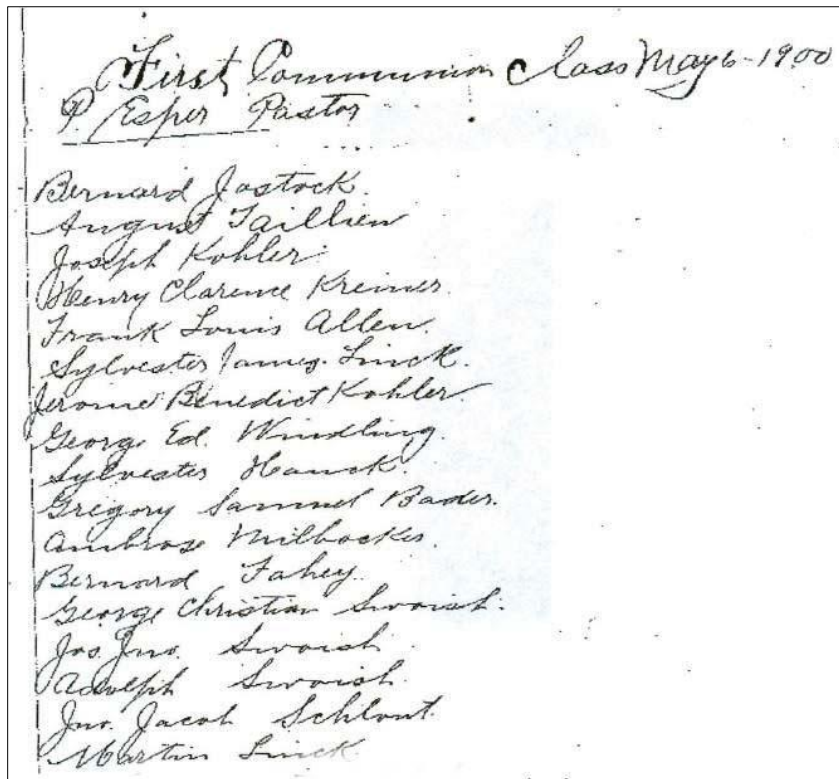 First Communion Class May 6-1900
P. Esper Pastor
Bernard Jostock.
August Taillien
Joseph Kohler.
Henry Clarence Kreiner.
Frank Louis Allen.
Sylvester James Linck.
Jerome Benedict Kohler.
George Ed. Windling.
Sylvester Hauck.
Gregory Samuel Bader.
Ambrose
Bernard Fahey.
George Christian Swoish.
Jos. Jno. Swoish
Adolph Swoish.
Jno. Jacob Schlont.
Martin Linck